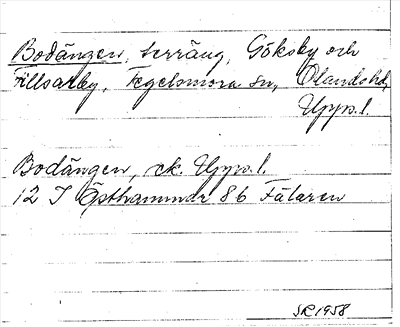 Bodängen, terräng, Göksby och
Fillsarby, Tegelsmora sn, Olands hd,
Upps. l.
Bodängen, ek. Upps. l.
12 I Östhammar 8 b Fälaren
SR 1958